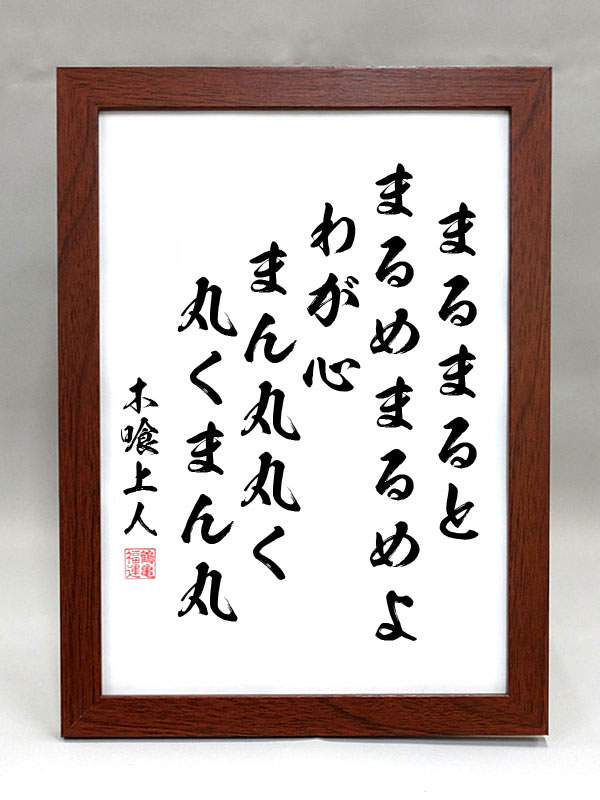 まるまると
まるめまるめよ
わが心
まん丸丸く
丸くまん丸
木喰上人
鶴亀
福運